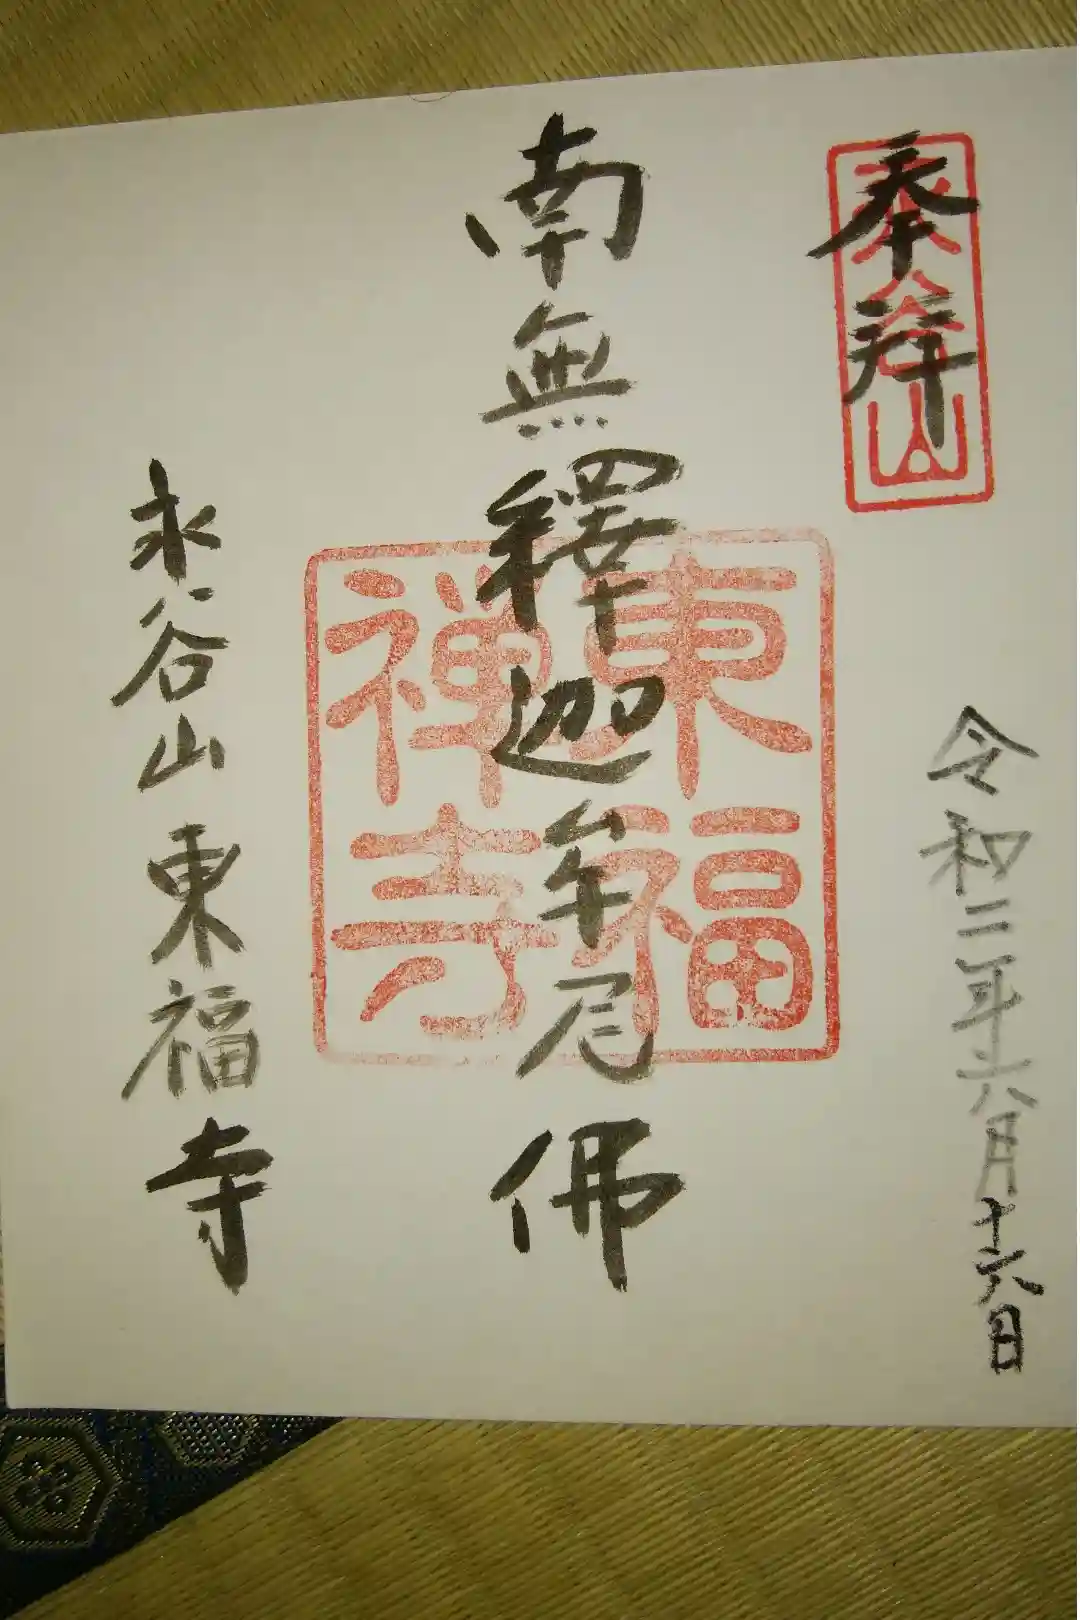 奉拝
永谷山
令和二年六月十六日
南無釋迦牟尼佛
東福禅寺
永谷山東福寺